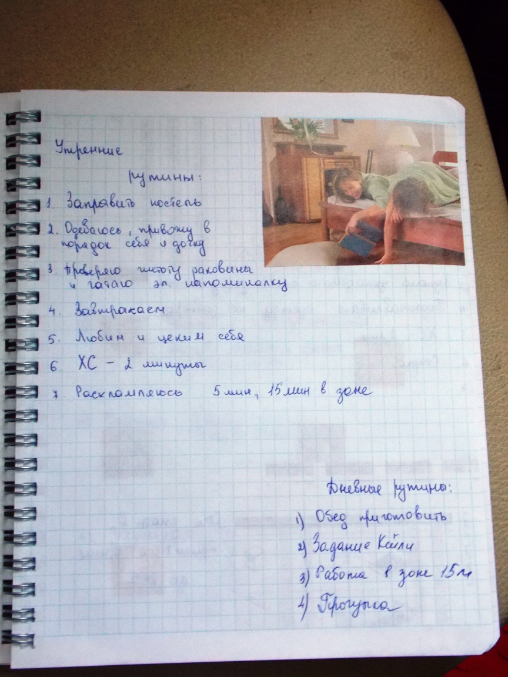 Утренние
рутины:
1. Заправить постель
2. Одеваюсь, привожу в
порядок себя и дочку
3 Проверяю чистоту раковины
и читаю эл. напоминалку
4. Завтракаем
5. Любим и ценим себя
6. ХС – 2 минуты
7 Расхламляюсь 5 мин, 15 мин в зоне
Дневные рутины:
1) Обед приготовить
2) Задание Келли
3) Работа в зоне 15м
4) Прогулка